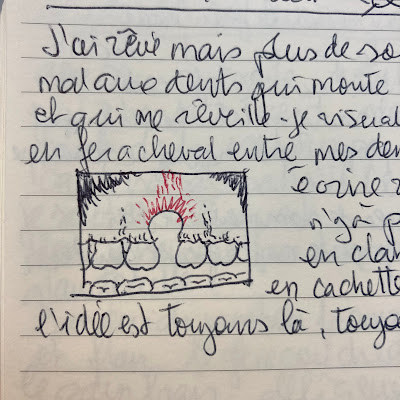 J'ai rêvé mais plus de so
mal aux dents qui monte
et qui me réveille. je visual
en fer à cheval entre mes den
écrire
n'y a p
en clan
en cachette
l'idée est toujours là, toujo